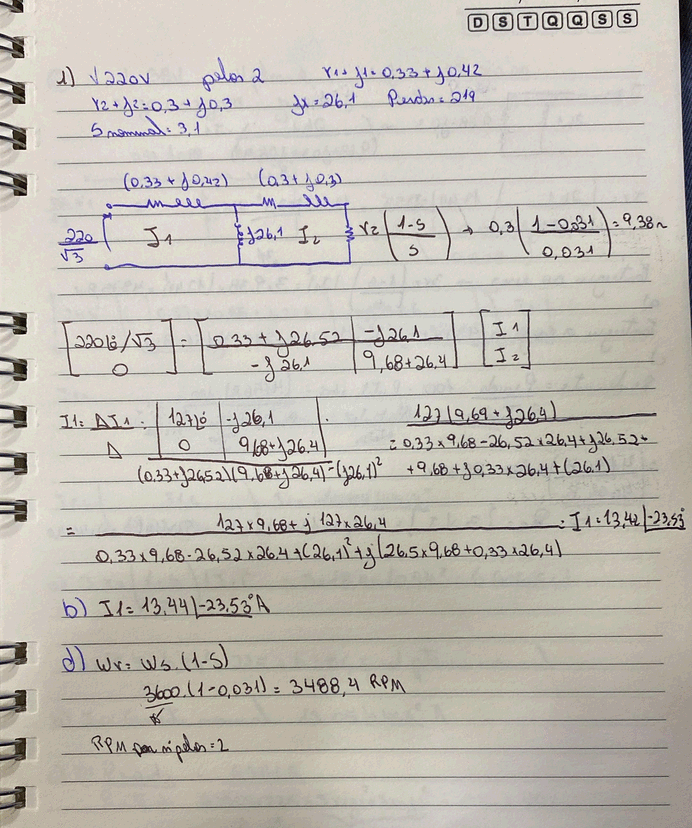 D S T Q Q S S
1) √220V polos 2 r1+j1=0,33+j0,42
r2+j2=0,3+j0,3 jx=26,1 Perdas=219
Snominal=3,1
(0,33+j0,42) (0,3+j0,3)
220/√3 I1 j26,1 I2 r2(1-S/S) → 0,3(1-0,031/0,031)=9,38Ω
[220⌊0°/√3 0] = [0,33+j26,52 -j26,1 -j26,1 9,68+26,4] [I1 I2]
I1: ΔI1/Δ : |127⌊0° -j26,1 0 9,68+j26,4| . 127(9,69+j26,4)
(0,33+j26,52)(9,68+j26,4)-(j26,1)² =0,33x9,68-26,52x26,4+j26,52x
+9,68+j0,33x26,4+(26,1)
= 127x9,68+j127x26,4 : I1=13,42⌊-23,53°
0,33x9,68-26,52x26,4+(26,1)²+j(26,5x9,68+0,33x26,4)
b) I1=13,44⌊-23,53°A
d) Wr=Ws.(1-S)
3600.(1-0,031)=3488,4 RPM
RPM por nºpolos=2